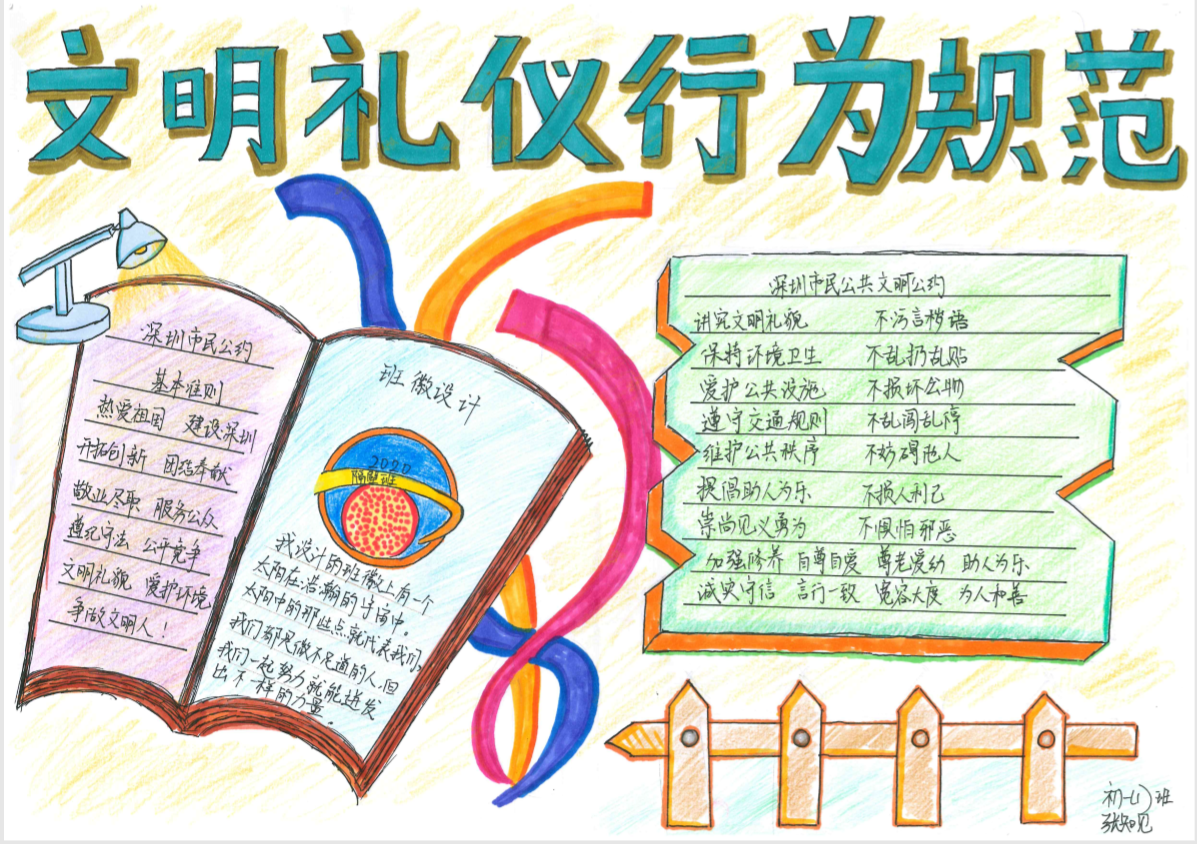 文明礼仪行为规范
深圳市民公约
基本准则
热爱祖国 建设深圳
开拓创新 团结奉献
敬业尽职 服务公众
遵纪守法 公平竞争
文明礼貌 爱护环境
争做文明人!
班徽设计
2020
我设计的班徽上有一个
太阳在浩瀚的宇宙中。
太阳中的那些点就代表我们,
我们都是微不足道的人,但
我们一起努力就能迸发
出不一样的力量。
深圳市民公共文明公约
讲究文明礼貌 不污言秽语
保持环境卫生 不乱扔乱贴
爱护公共设施 不损坏公物
遵守交通规则 不乱闯乱停
维护公共秩序 不妨碍他人
提倡助人为乐 不损人利己
崇尚见义勇为 不惧怕邪恶
加强修养 自尊自爱 尊老爱幼 助人为乐
诚实守信 言行一致 宽容大度 为人和善
初一(1)班
张知见